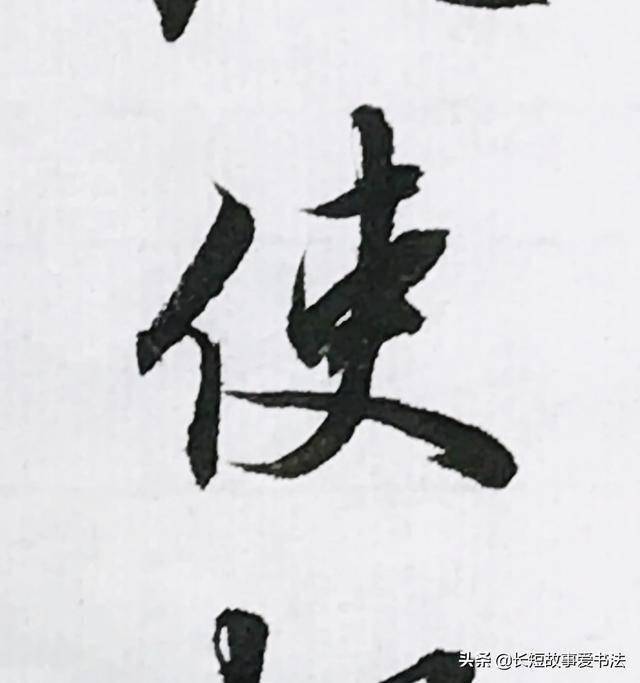 使
头条 @长短故事爱书法